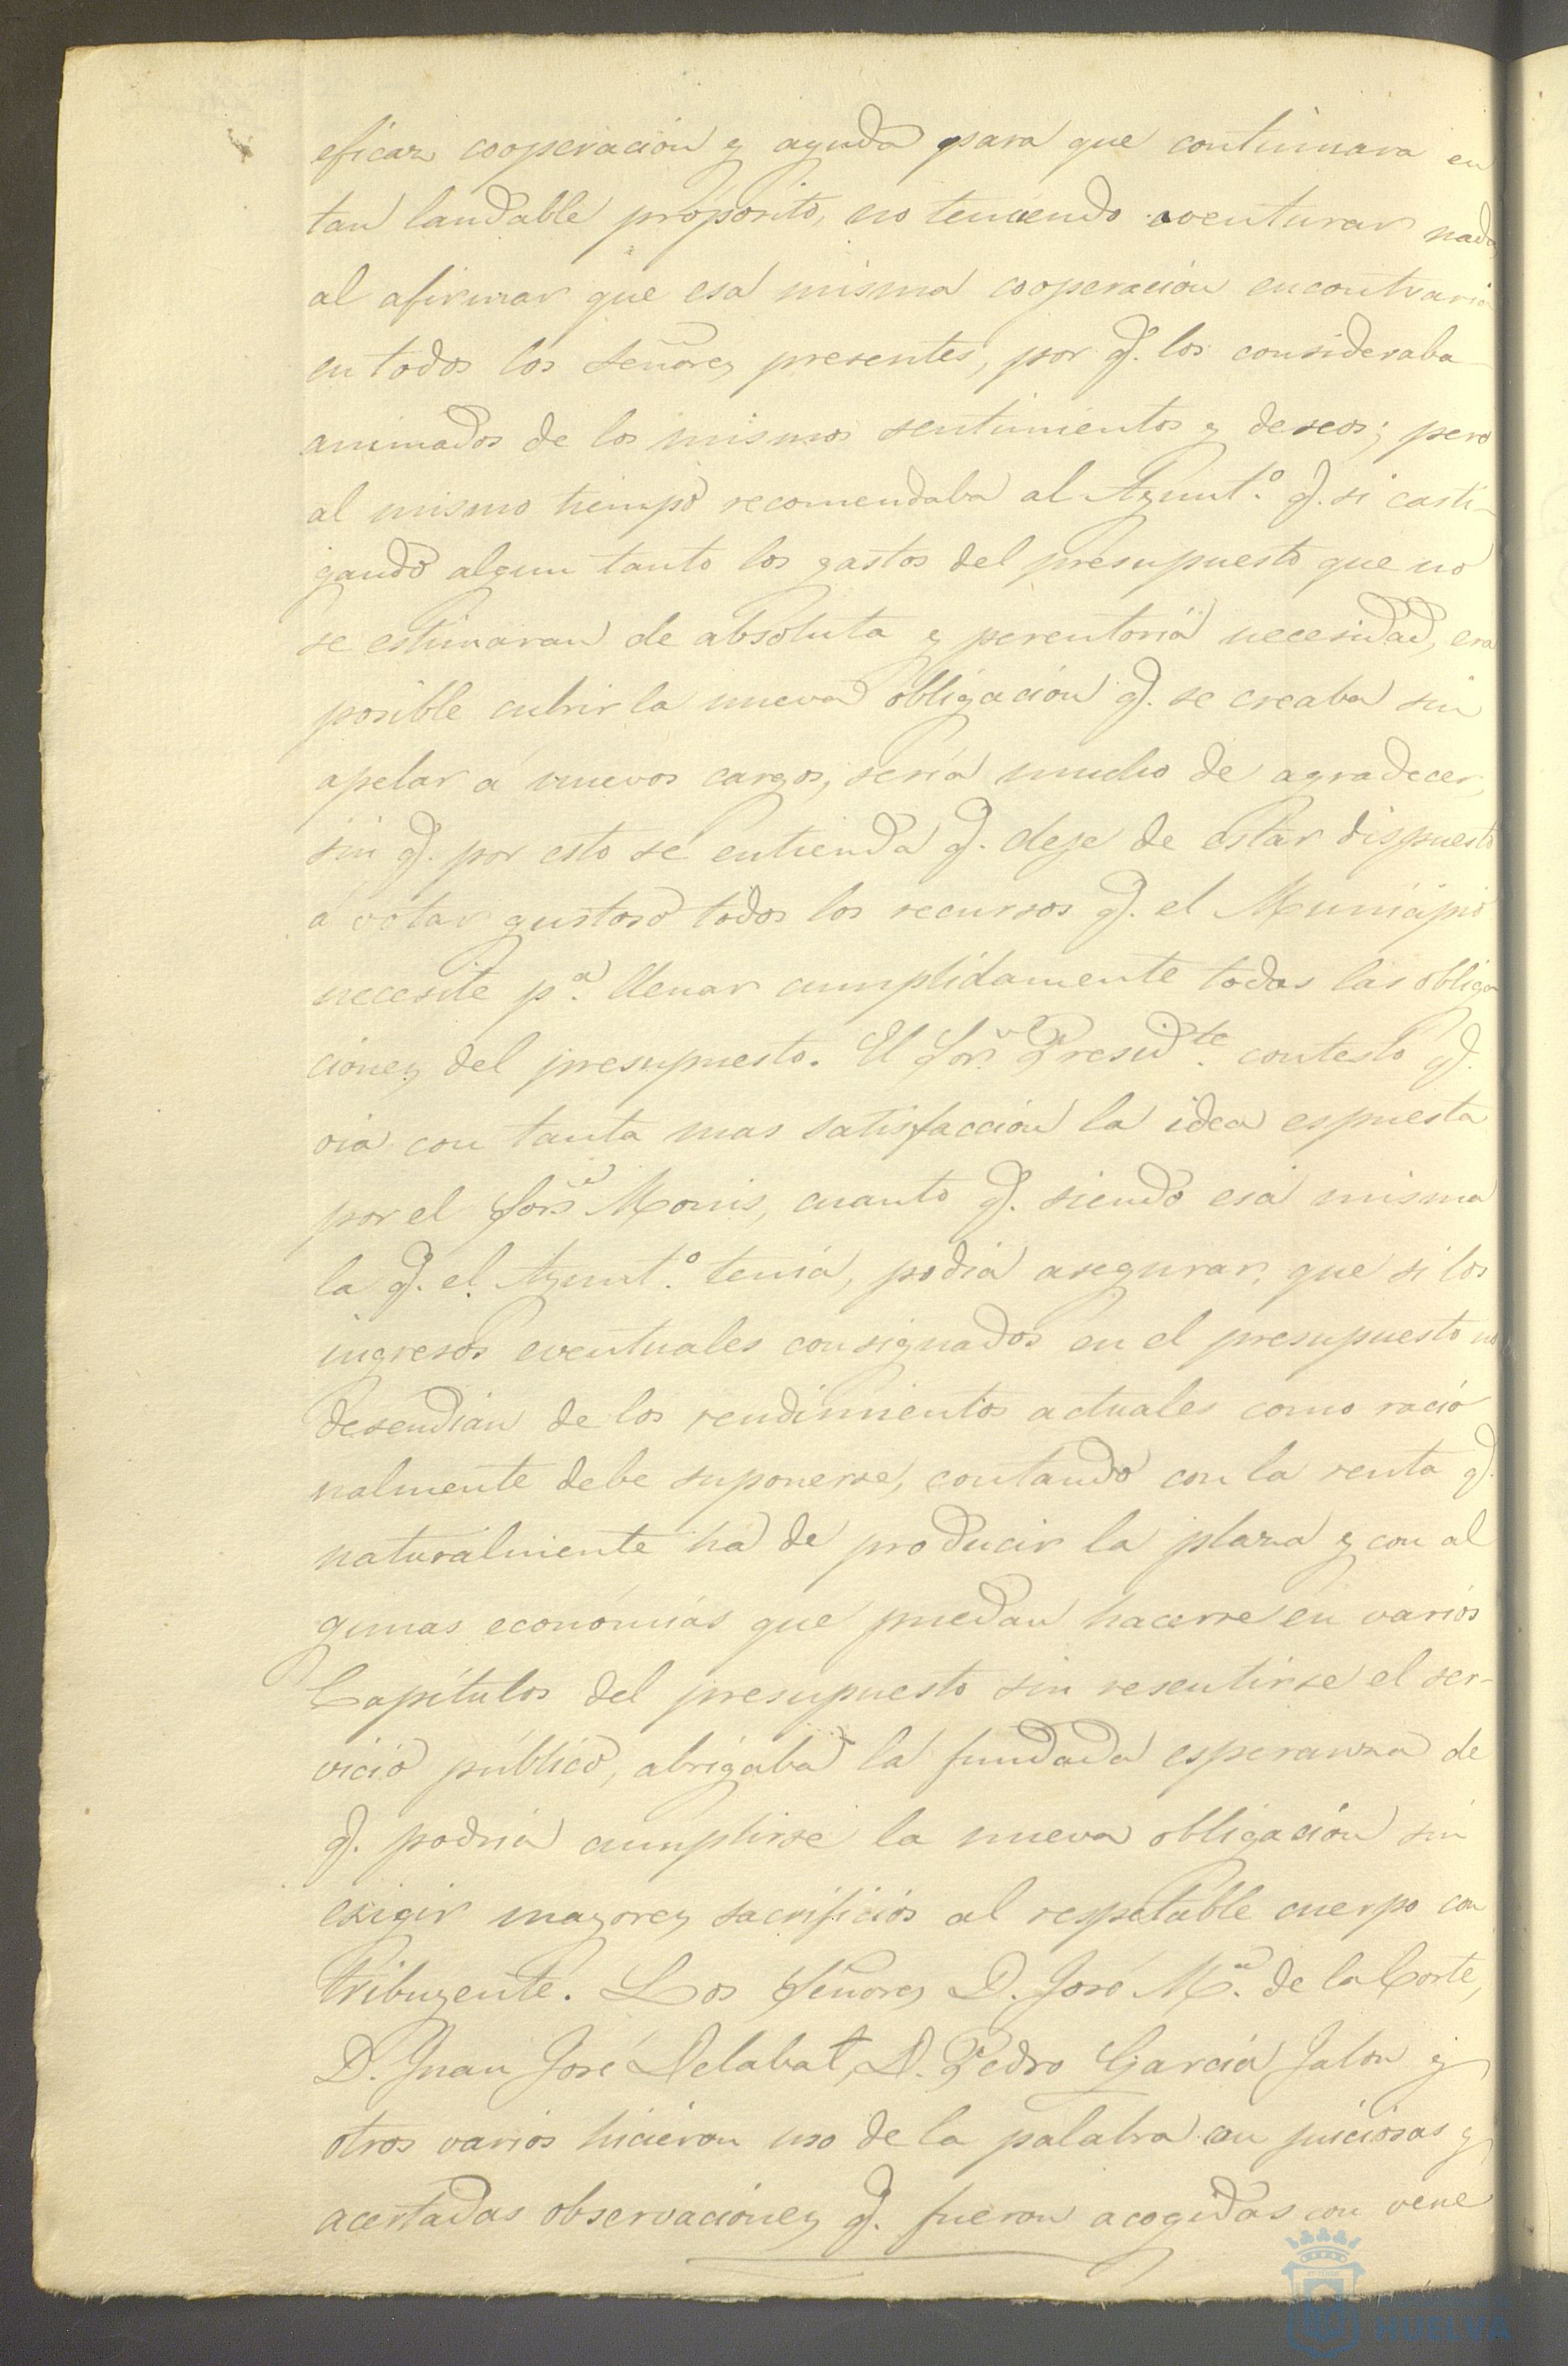 eficaz cooperación y ayuda para que continuara en
tan laudable próposito, no temiendo aventurar nada
al afirmar que esa misma cooperación encontraria
en todos los Señores presentes, por q. los consideraba
animados de los mismos sentimientos y deseos; pero
al mismo tiempo recomendaba al Ayunt.º q. si casti-
gando algun tanto los gastos del presupuesto que no
se estimaran de absoluta y perentoria necesidad, era
posible cubrir la nueva obligación q. se creaba sin
apelar a nuevos cargos, seria mucho de agradecer,
sin q. por esto se entienda q. deje de estar dispuesto
a votar gustoso todos los recursos q. el Municipio
necesite p.ª llenar cumplidamente todas las obliga
ciones del presupuesto. El Sor. Presid.te contestó q.
oia con tanta mas satisfacción la idea espuesta
por el Sor. Monis, cuanto q. siendo esa misma
la q. el Ayunt.º tenia, podia asegurar, que si los
ingresos eventuales consignados en el presupuesto no
desendian de los rendimientos actuales como racio
nalmente debe suponerse, contando con la renta q.
naturalmente ha de producir la plaza y con al
gunas economias que puedan hacerse en varios
Capítulos del presupuesto sin resentirse el ser-
vicio público, abrigaba la fundada esperanza de
q. podria cumplirse la nueva obligación sin
exigir mayores sacrificios al respetable cuerpo con
tribuyente. Los Señores D. José M.ª de la Corte,
D. Juan José Delabat, D. Pedro Garcia Jalon y
otros varios hicieron uso de la palabra con juiciosas y
acertadas observaciones q. fueron acogidas con vene
HUELVA